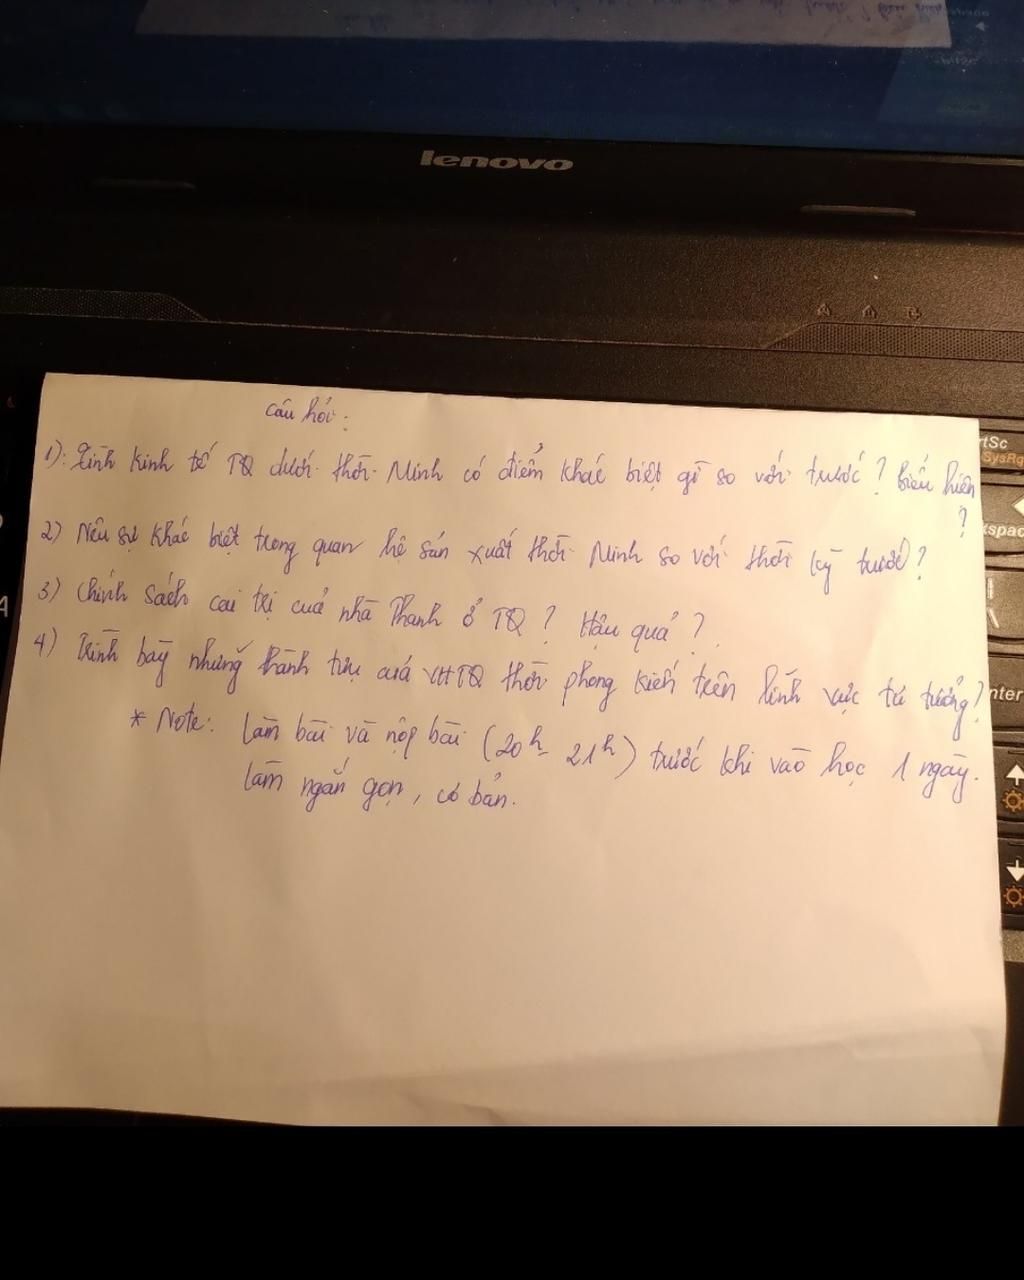 lenovo
rtSc
SysRq
Câu hỏi:
1): Tình kinh tế TQ dưới thời Minh có điểm khác biệt gì so với trước? Biểu hiện
?
2) Nêu sự khác biệt trong quan hệ sản xuất thời Minh so với thời kỳ trước?
3) Chính sách cai trị của nhà Thanh ở TQ? Hậu quả?
4) Trình bày những thành tựu của VHTQ thời phong kiến trên lĩnh vực tư tưởng?
* Note: Làm bài và nộp bài (20h - 21h) trước khi vào học 1 ngày.
Làm ngắn gọn, cơ bản.
kspac
nter
A